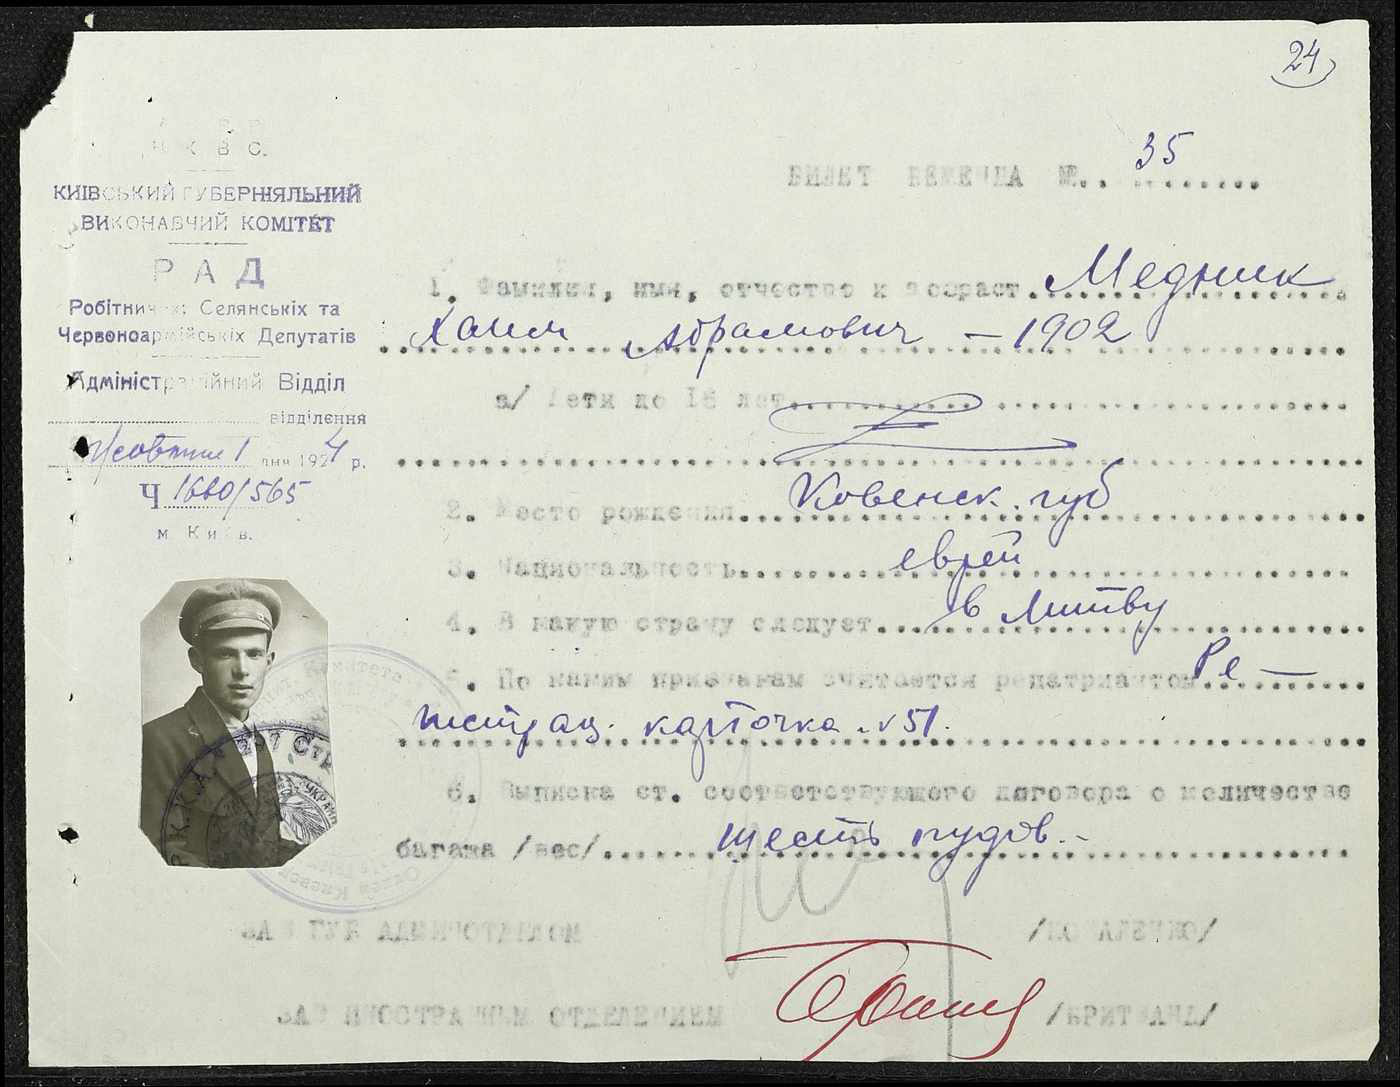 24
Н К В С.
КИЇВСЬКИЙ ГУБЕРНІЯЛЬНИЙ
ВИКОНАВЧИЙ КОМІТЕТ
РАД
Робітничих Селянських та
Червоноармійських Депутатів
Адміністраційний Відділ
відділення
Жовтня 1 дня 1924 р.
Ч 1660/565
м. Київ.
БИЛЕТ БЕЖЕНЦА №.. 35
1. Фамилия, имя, отчество и возраст. Медник
Хаим Абрамович – 1902
а/ Дети до 16 лет
2. Место рождения Ковенск. губ
3. Национальность еврей
4. В какую страну следует в Литву
5. По каким признакам считается репатриантом Ре—
гистрац. карточка № 51.
6. Выписка ст. соответствующего договора о количестве
багажа /вес/ шесть пудов. –
ЗАВ ГУБ АДМИНОТДЕЛОМ /КОВАЛЕНКО/
ЗАВ ИНОСТРАННЫМ ОТДЕЛЕНИЕМ /БРИТВАНД/